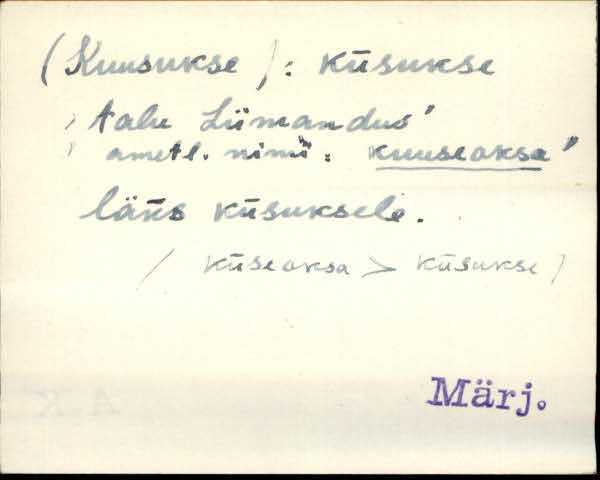 (Kuusukse): kūsukse
, talu Liimandus"
, ametl. nimi: kuuseoksa"
läks kūsuksele.
( kūseoksa > kūsukse)
Märj.